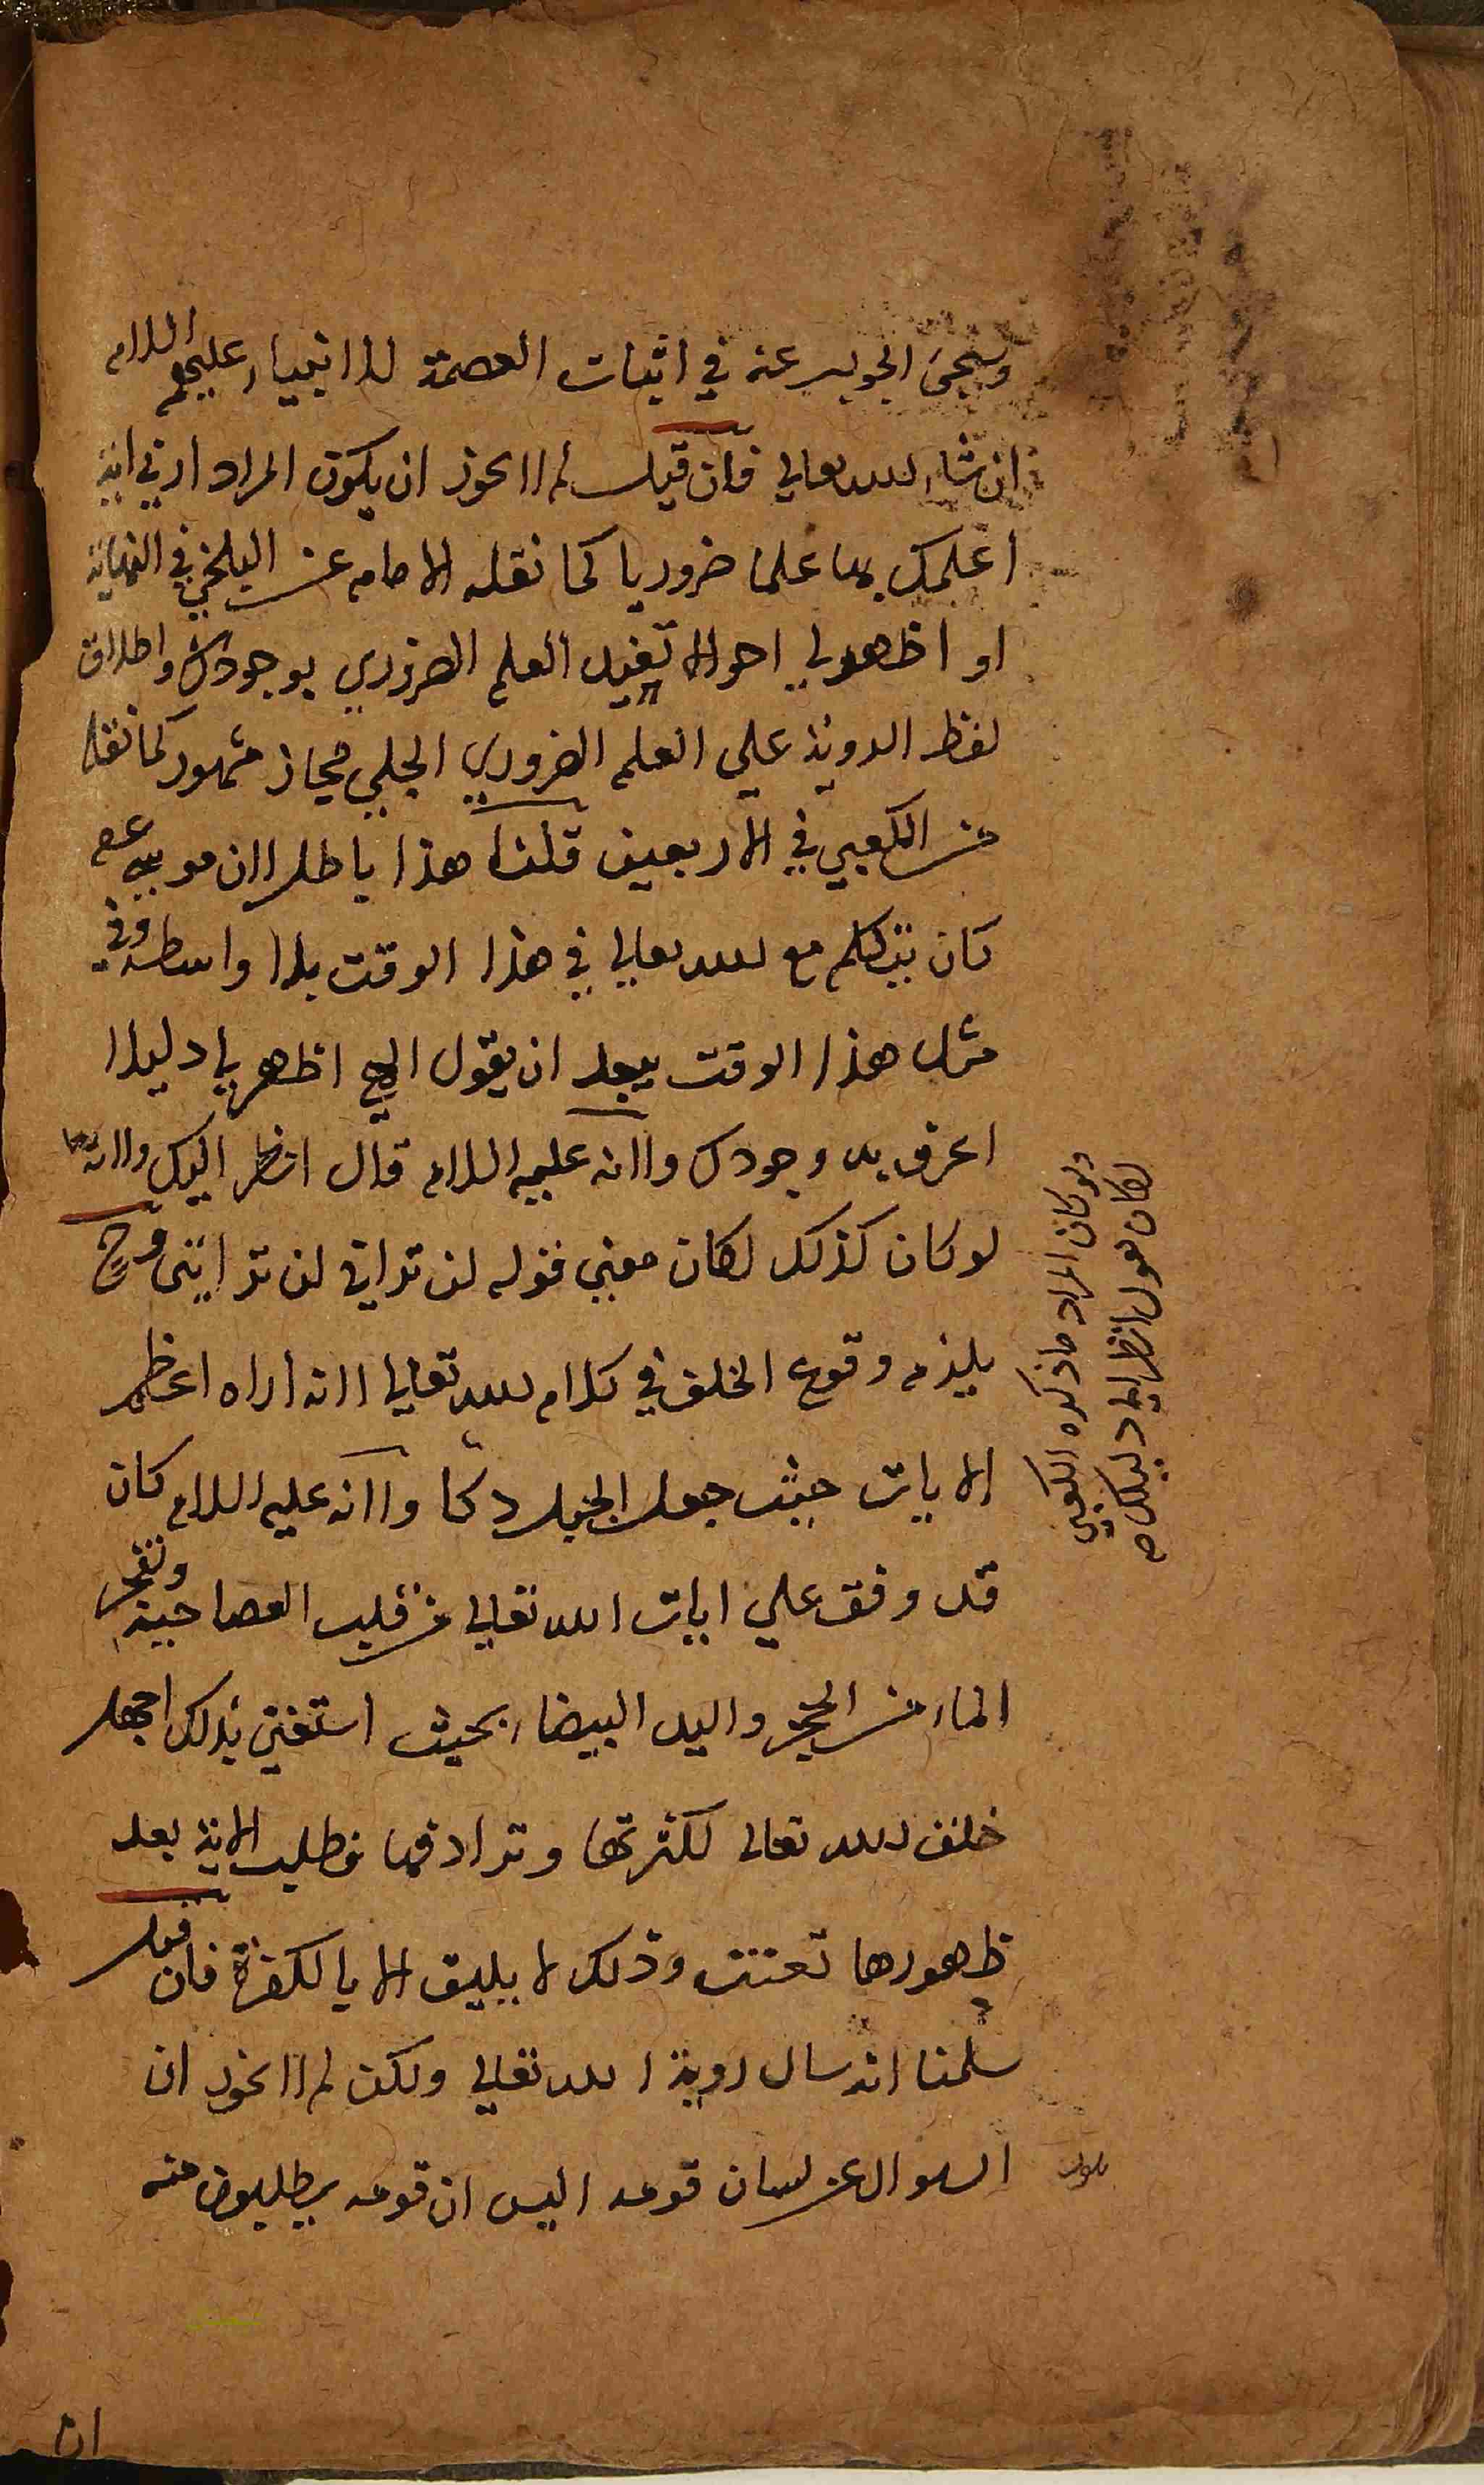 وسيجئ الجواب عنه في اثبات العصمة للانبياء عليهم السلام
ان شاء الله تعالى فان قيل لم لا يجوز ان يكون المراد ارني اية
اعلمك بها علما ضروريا كما نقله الامام عن البلخي في النهاية
او اظهر لي احوالا تفيد العلم الضروري بوجودك واطلاق
لفظ الروية على العلم الضروري الجلي مجاز مشهور كما نقله
عن الكعبي في الاربعين قلنا هذا باطل لان موسى عم
كان يتكلم مع الله تعالى في هذا الوقت بلا واسطة وفي
مثل هذا الوقت يبعد ان يقول الهي اظهر لي دليلا
اعرف به وجودك ولانه عليه السلام قال انظر اليك ولانه
لو كان كذلك لكان معنى قوله لن تراني لن ترا ايتي وح
يلزم وقوع الخلف في كلام الله تعالى لانه اراه اعظم
الايات حيث جعل الجبل دكا ولانه عليه السلام كان
قد وقف على ايات الله تعالى من قلب العصا حية وتفجر
الماء من الحجر واليد البيضاء بحيث استغنى بذلك اجهل
خلق الله تعالى لكثرتها وترادفها فطلب الاية بعد
ظهورها تعنت وذلك لا يليق الا بالكفرة فان قيل
سلمنا انه سال روية الله تعالى ولكن لم لا يجوز ان
يكون السوال عن لسان قومه اليس ان قومه يطلبون منه
ولو كان المراد ما ذكره الكعبي
لكان يقول انظر الى دليلك صح
ان